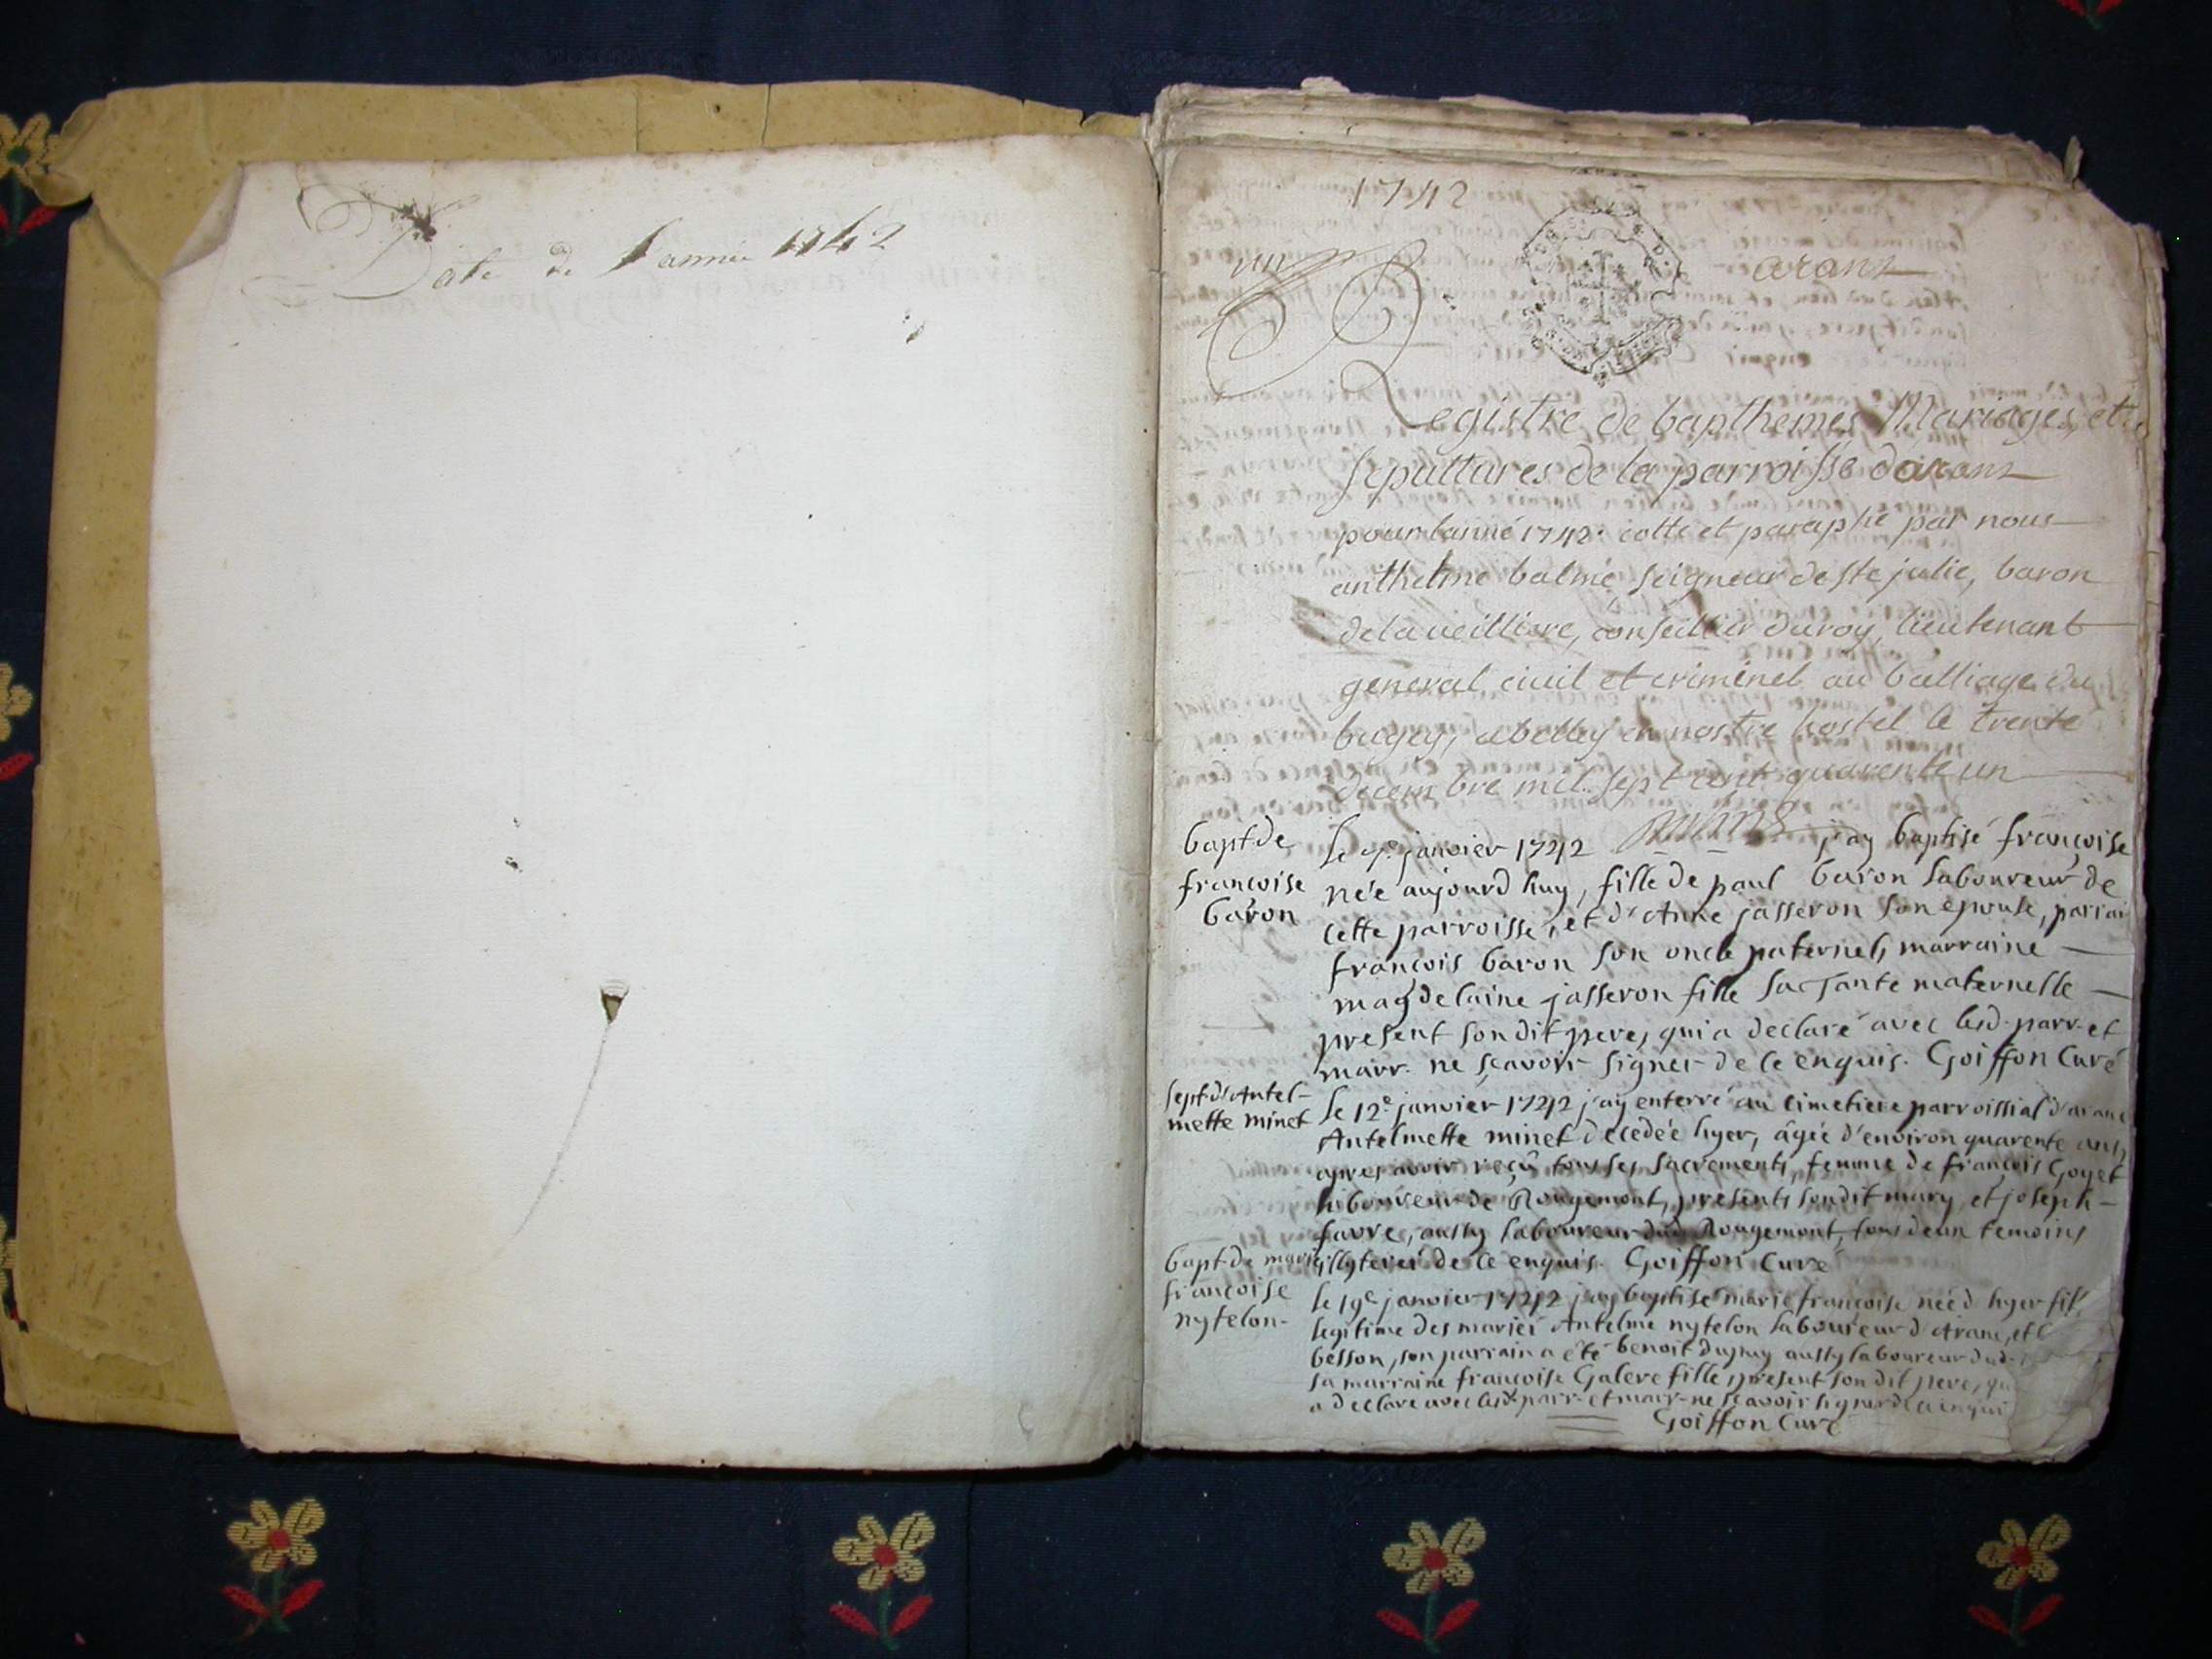 Date de l'année 1742
1742
un
arans
Registre de bapthemes Mariages, et
sepultures de la parroisse darans
pour lanné 1742. cotté et paraphé par nous
anthelme balme seigneur de ste julie, baron
de la veilliere, conseiller du roy, lieutenant
general civil et criminel au balliage du
bugey, a belley en nostre hostel le trente
decembre mil sept cent quarente un
bapt de
francoise
baron
le janvier 1742 j'ay baptisé françoise
née aujourd huy, fille de paul baron laboureur de
cette parroisse, et d'Anne jasseron son épouse, parrai
françois baron son oncle paternel, marraine
magdelaine jasseron fille sa tante maternelle
present son dit pere, qui a declaré avec lesd. parr. et
marr. ne sçavoir signer de ce enquis. Goiffon Curé
sept d'Antel-
mette minet
le 12e janvier 1742 j'ay enterré au cimetiere parroissial d'aranc
Antelmette minet decedée hyer, âgée d'environ quarente ans,
apres avoir reçû tous ses sacrements, femme de françois Goyet
laboureur de Rougemont, presents son dit mary et joseph
favre, aussy laboureur dud Rougemont, tous deux temoins
illyterés de ce enquis. Goiffon Curé
bapt de marie
françoise
nytelon
le 19e janvier 1742 j'ay baptisé marie françoise née d'hyer fil
legitime des mariés Antelme nytelon laboureur d'Aranc, et
besson, son parrain a été benoit dupuy aussy laboureur dud.
sa marraine françoise Galere fille, present son dit pere, qu
a declaré avec lesd. parr. et marr. ne sçavoir signer de ce enqui
Goiffon Curé